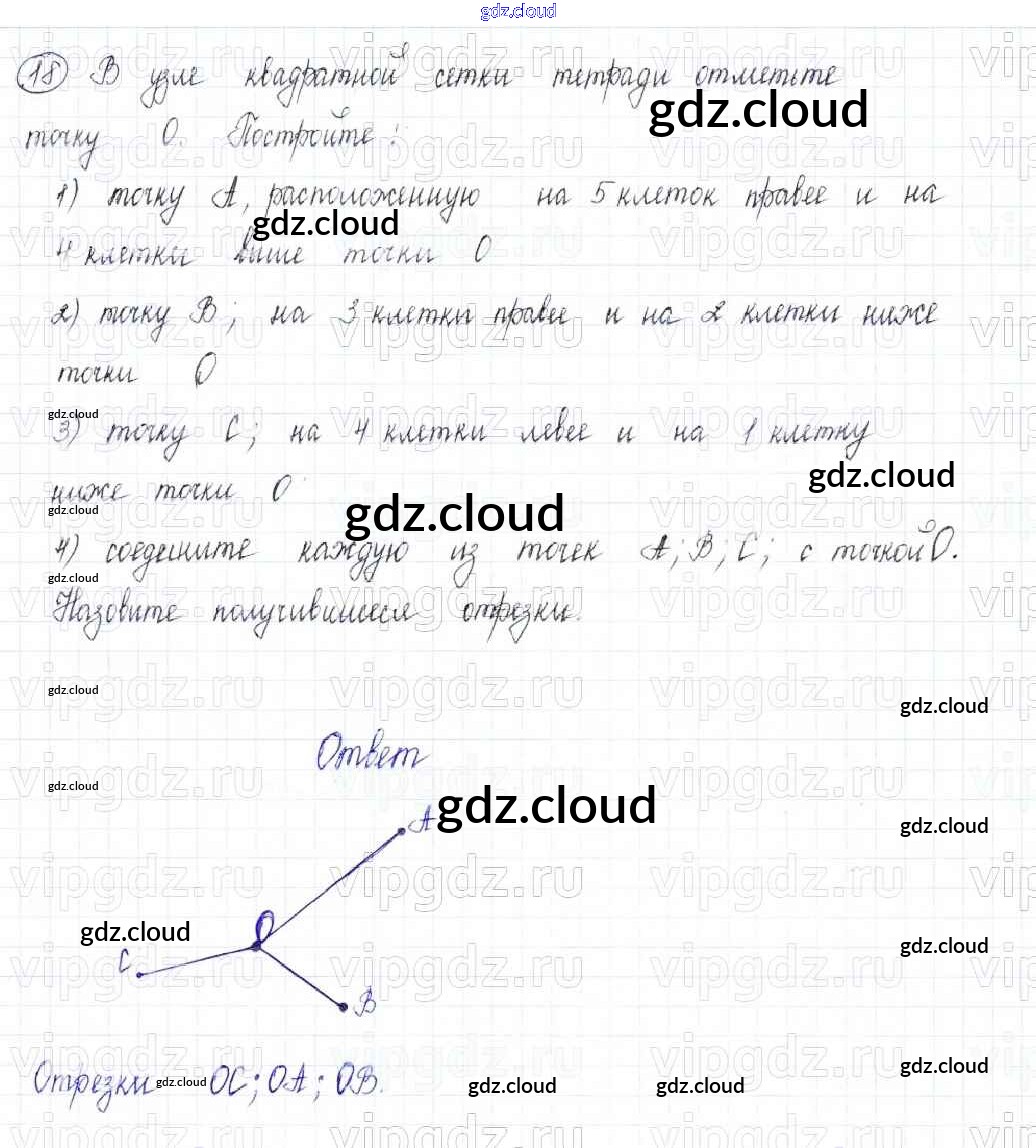 gdz.cloud
18 В узле квадратной сетки тетради отметьте
gdz.cloud
точку О. Постройте:
1) точку А, расположенную на 5 клеток правее и на
gdz.cloud
4 клетки выше точки О
2) точку В; на 3 клетки правее и на 2 клетки ниже
точки О
gdz.cloud
3) точку С; на 4 клетки левее и на 1 клетку
gdz.cloud
ниже точки О
gdz.cloud
gdz.cloud
4) соедените каждую из точек А; В; С; с точкой О.
gdz.cloud
Назовите получившиеся отрезки.
gdz.cloud
gdz.cloud
Ответ
gdz.cloud
А gdz.cloud
gdz.cloud
О
gdz.cloud
gdz.cloud
С
В
gdz.cloud
Отрезки gdz.cloud ОС; ОА; ОВ.
gdz.cloud gdz.cloud
vipgdz.ru